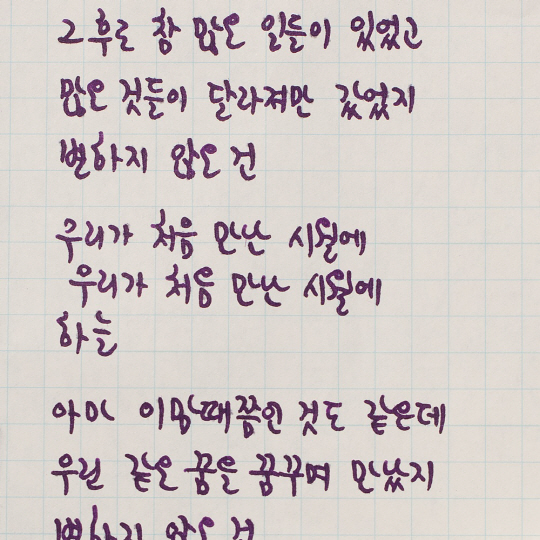 그후로 참 많은 일들이 있었고
많은 것들이 달라져만 갔었지
변하지 않은 건
우리가 처음 만난 시월에
우리가 처음 만난 시월에
하늘
아마 이맘때쯤인 것도 같은데
우린 같은 꿈을 꿈꾸며 만났지
변하지 않은 건